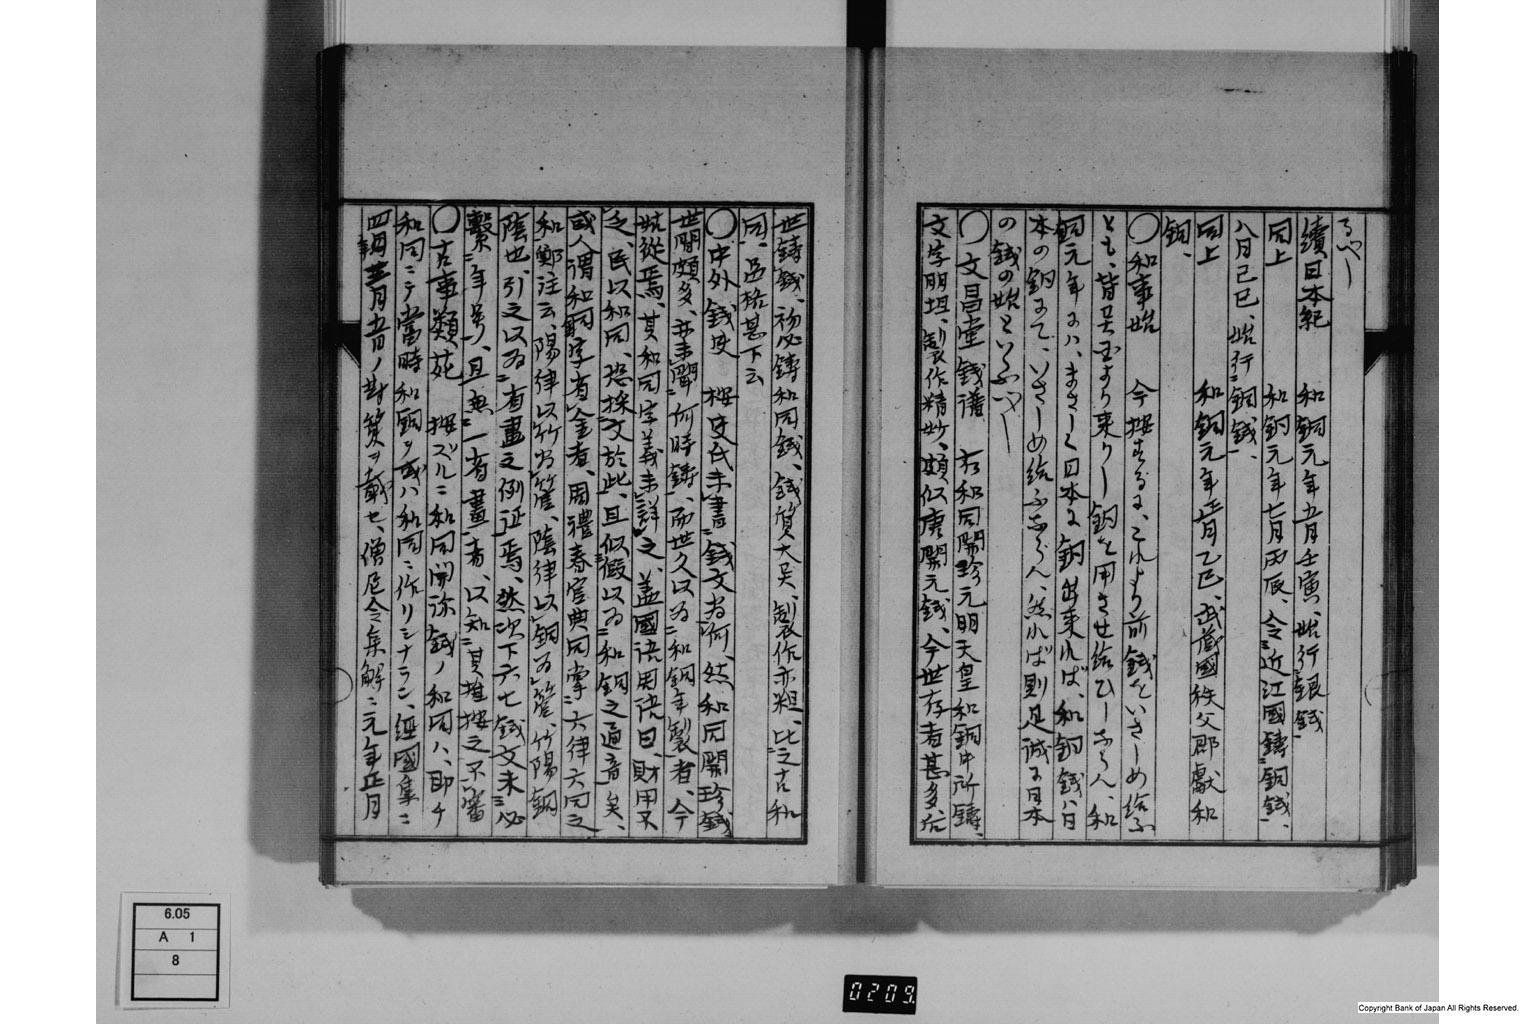 るべし
續日本紀　和銅元年五月壬寅、始行銀錢、
同上　和銅元年七月丙辰、令近江國鑄銅錢、
八月己巳、始行銅錢、
同上　和銅元年正月乙巳、武藏國秩父郡獻和
銅、
〇和事始　今按するに、これより前錢をいさしめ給ふ
とも、皆異国より来りし銅を用させ給ひしならん、和
銅元年には、まさしく日本に銅出来れば、和銅錢ハ日
本の銅にて、いさしめ給ふならん、然れば則是誠に日本
の錢の始といふべし
〇文昌堂錢譜　右和同開珍元明天皇和銅中所鑄、
文字明坦、製作精妙、頗似唐開元錢、今世存者甚多、后
世鑄錢、初必鑄和同錢、錢質大異、製作亦粗、比之古和
同、品格甚下云
〇中外錢史　按史氏未書錢文為何、然和同開珍錢
世間頗多、亦未聞何時鑄、而世久以為和銅年製者、今
姑從焉、其和同字義未詳之、盖國語周語曰、財用不
乏、民以和同、恐採文於此、且似假以為和銅之通音矣、
或人謂和銅字省金者、周禮春官典同掌六律六同之
和鄭注云、陽律以竹為管、陰律以銅為管、竹陽銅
陰也、引之以為省畫之例证焉、然次下六七錢文未必
繫年号、且無一省畫者、以知其推按之不審
〇古事類苑　按ズルニ和同開珎錢ノ和同ハ、即チ
和同ニテ當時和銅ヲ或ハ和同ニ作リシナラン、經國集ニ
月ノ對策ヲ載セ、僧尼令集解ニ元年正月
6.05
A 1
8
0209
Copyright Bank of Japan All Rights Reserved.